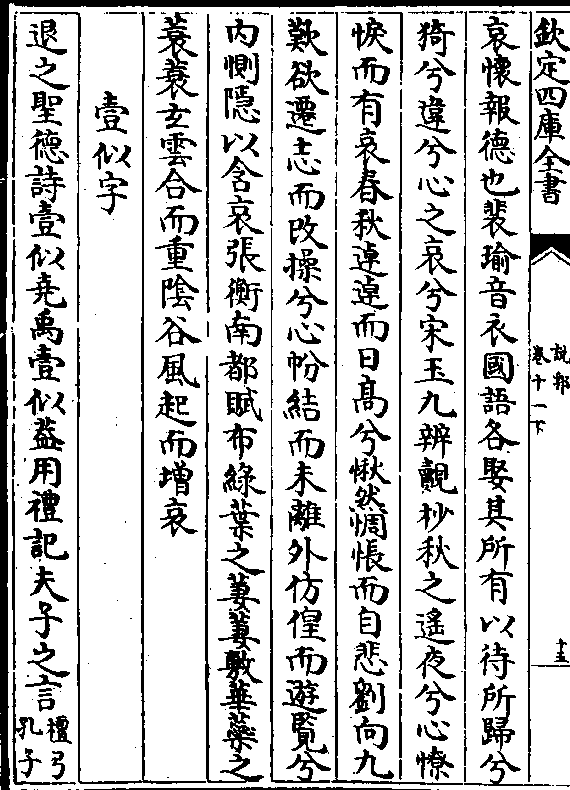 欽定四庫全書
說郛
卷十一下
十五
哀懷報德也裴瑜音衣國語各娶其所有以待所歸兮
猗兮違兮心之哀兮宋玉九辨覿杪秋之遙夜兮心憭
悷而有哀春秋逴逴而日髙兮愀然惆悵而自悲劉向九
歎欲遷志而改操兮心帉結而未離外仿偟而遊覧兮
内惻隱以含哀張衡南都賦布綠葉之萋萋敷華蘂之
蓑蓑玄雲合而重陰谷風起而增哀
壹似字
退之聖德詩壹似堯禹壹似葢用禮記夫子之言檀弓
孔子